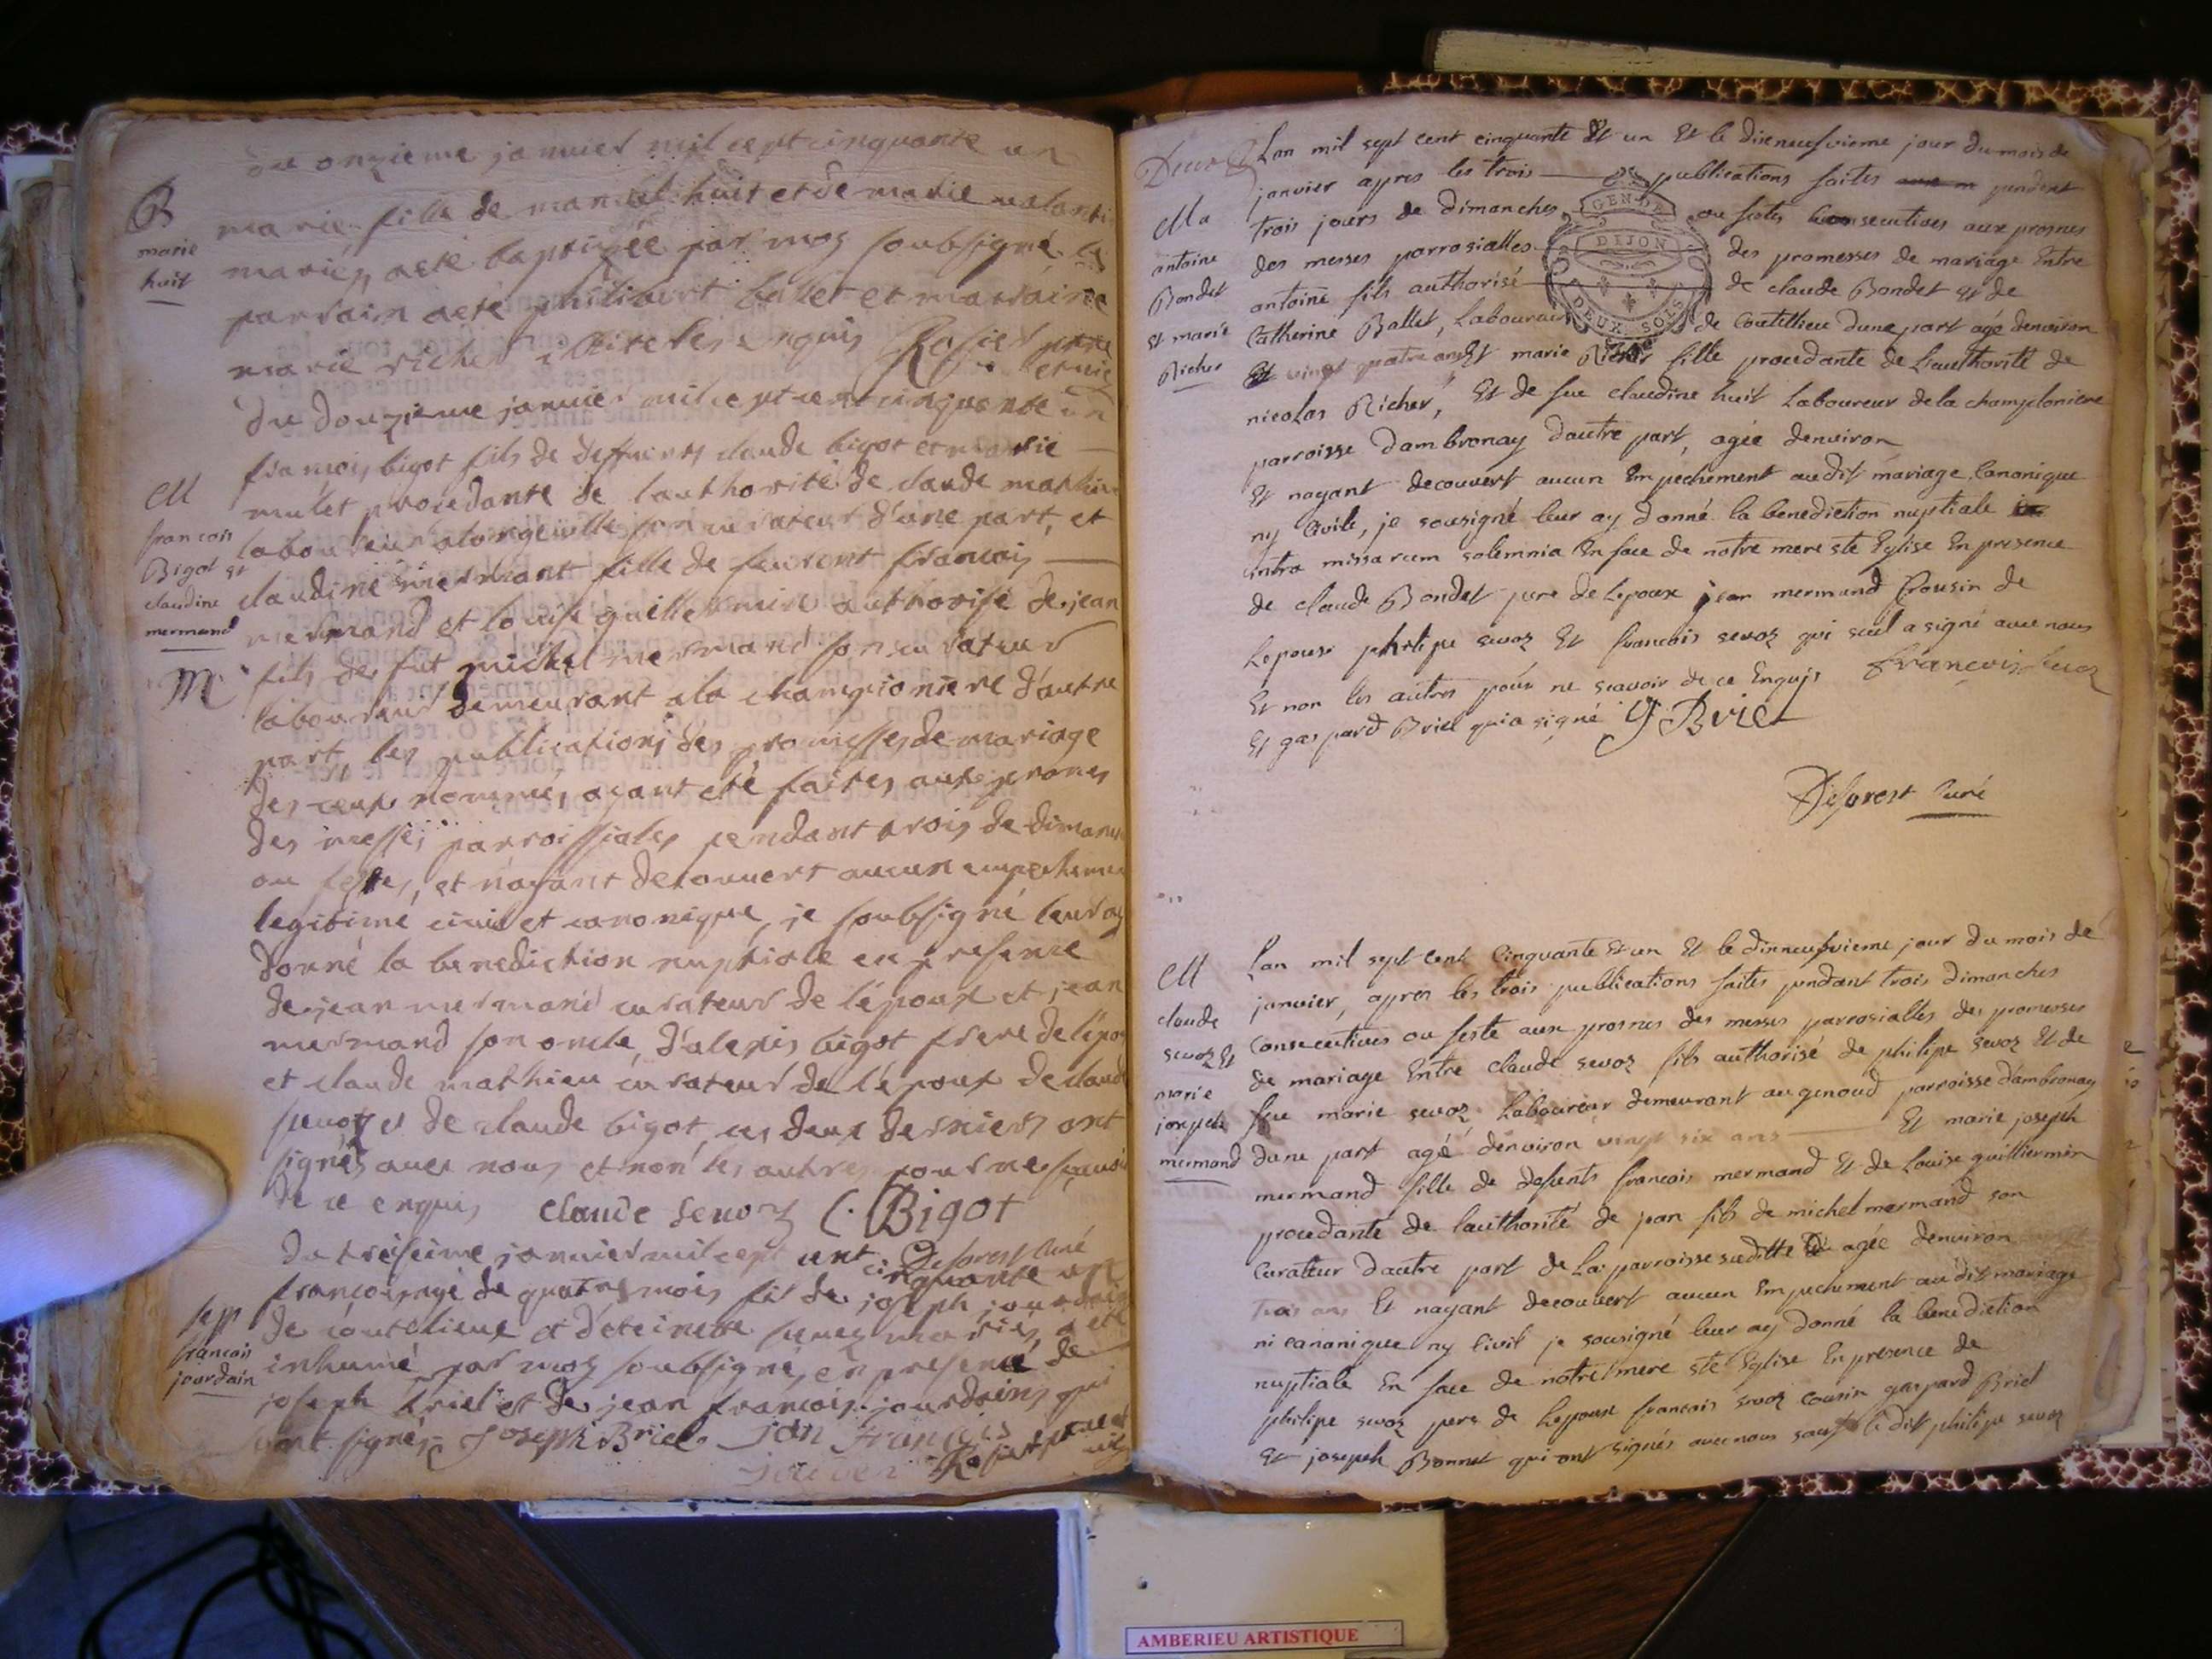 du onzieme janvier mil sept cinquante un
B
marie
huit
marie fille de marcel huit et de marie
mariés a eté baptizée par moy soubsigné
parrain a eté philibert ballet et marraine
marie richer enquis Rosier pretre
vic
du douzieme janvier mil sept cent cinquante un
M
francois
Bigot et
claudine
mermand
M
francois bigot fils de deffunts claude bigot et marie
mulet procedante de l'authorité de claude mathieu
laboureur a longeville son curateur d'une part, et
claudine mermant fille de feu francois
mermand et louise guillermin authorisé de jean
fils de fut michel mermand son curateur
laboureur demeurant a la championiere d'autre
part, les publications des promesses de mariage
des ceux nommés ayant eté faites aux prones
des messes parroissiales pendant trois de dimanches
ou festes, et n'ayant decouvert aucun empechement
legitime civil et canonique, je soubsigné leur ay
donné la benediction nuptiale en presence
de jean mermand curateur de l'epoux et jean
mermand son oncle, d'alexis bigot frere de l'epoux
et claude mathieu curateur de l'epoux de claude
sevoz et de claude bigot, ces deux derniers ont
signés avec nous et non les autres pour ne sçavoir
de ce enquis claude sevoz C. Bigot
Deforest curé
du treiseime janvier mil sept cent cinquante un
sep
francois
jourdain
francois agé de quatre mois fil de joseph jourdain
de coutelieux et d'eteinette mariés, a eté
inhumé par moy soubsigné, en presence de
joseph briel et de jean francois jourdains qui
ont signés Joseph Briel jan François
Lan mil sept cent cinquante Et un Et le dixneufvieme jour du mois de
Ma
antoine
Bondet
Et marie
Richer
janvier apres les trois publications faites pendent
GEN DE
DIJON
DEUX SOLS
trois jours de dimanches ou festes consecutives aux prosnes
des messes parrosialles des promesses de mariage Entre
antoine fils authorisé de claude Bondet Et de
Catherine Ballet, Laboureur de Coutillieu dune part agé denviron
vingt quatre ans Et marie Richer fille procedante de Lauthorité de
nicolas Richer, Et de fue claudine huit Laboureur de la championiere
parroisse dambronay dautre part, agée denviron
Et nayant decouvert aucun Empechement audit mariage Canonique
ny Civile, je sousigné leur ay donné la benediction nuptiale
intra missarum solemnia En face de notre mere ste Eglise En presence
de claude Bondet pere de Lepoux jean mermand Cousin de
Lepouse philipe sevoz Et francois sevoz qui seul a signé avec nous
Et non les autres pour ne scavoir de ce Enquis François Sevoz
Et gaspard Briel qui a signé G Briel
Deforest Curé
M
claude
sevoz Et
marie
joseph
mermand
Lan mil sept Cent Cinquante Et un Et le dixneufvieme jour du mois de
janvier, apres les trois publications faites pendant trois dimanches
Consecutives ou feste aux prosnes des messes parrosialles des promesses
de mariage Entre claude sevoz fils authorisé de philipe sevoz Et de
fue marie sevoz Laboureur demeurant au genoud parroisse d'ambronay
dune part agé denviron vingt six ans Et marie joseph
mermand fille de defunts francois mermand Et de Louise guilliermin
procedante de lauthorité de jean fils de michel mermand son
Curateur dautre part de La parroisse suditte agée denviron
trois ans Et nayant decouvert aucun Empechement audit mariage
ni cananique ny Civil je sousigné leur ay donné la benediction
nuptiale En face de notre mere ste Eglise En presence de
philipe sevoz pere de Lepoux francois sevoz cousin gaspard Briel
Et joseph Bonnet qui ont signés avec nous sauf le dit philipe sevoz
AMBERIEU ARTISTIQUE